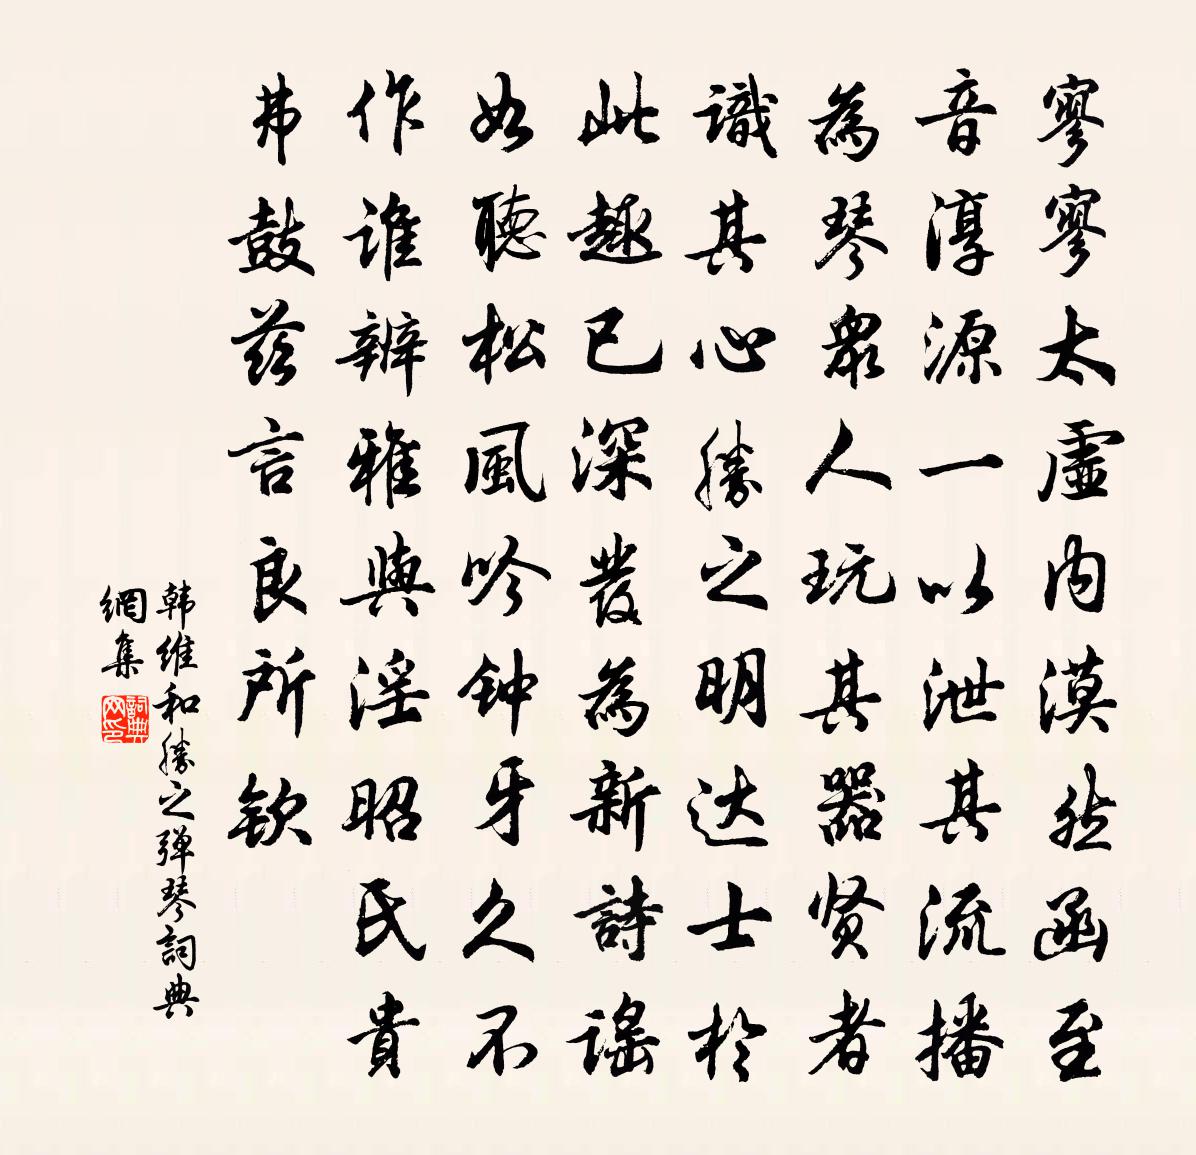 寥寥太虛内漠然函至
音淳源一以泄其流播
為琴衆人玩其器贤者
識其心勝之明达士於
此趣已深發為新詩謡
如聽松風吟钟牙久不
作谁辨雅與淫昭氏貴
弗鼓兹言良所欽
韩维和勝之弹琴詞典
網集
詞典
网印